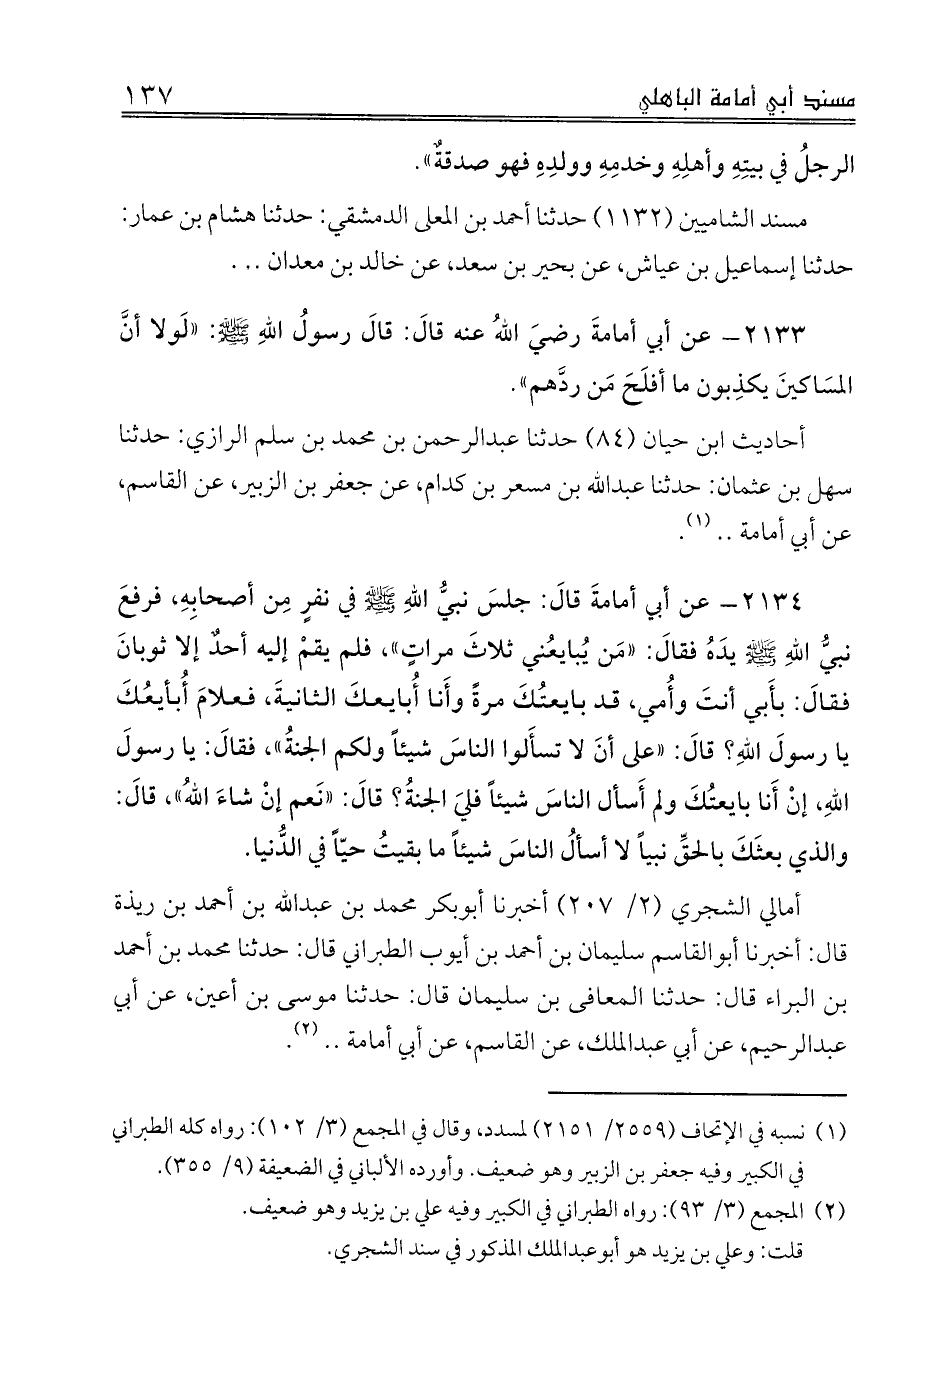 مسند أبي أمامة الباهلي ١٣٧
الرجلُ في بيتِهِ وأهلِهِ وخدمِهِ وولدِهِ فهو صدقةٌ».
مسند الشاميين (١١٣٢) حدثنا أحمد بن المعلى الدمشقي: حدثنا هشام بن عمار:
حدثنا إسماعيل بن عياش، عن بحير بن سعد، عن خالد بن معدان ...
٢١٣٣- عن أبي أمامةَ رضيَ اللهُ عنه قالَ: قالَ رسولُ اللهِ ﷺ: «لَولا أنَّ
المسَاكينَ يكذِبون ما أفلَحَ مَن ردَّهم».
أحاديث ابن حيان (٨٤) حدثنا عبدالرحمن بن محمد بن سلم الرازي: حدثنا
سهل بن عثمان: حدثنا عبدالله بن مسعر بن كدام، عن جعفر بن الزبير، عن القاسم،
عن أبي أمامة .. (١).
٢١٣٤- عن أبي أمامةَ قالَ: جلسَ نبيُّ اللهِ ﷺ في نفرٍ مِن أصحابِهِ، فرفعَ
نبيُّ اللهِ ﷺ يدَهُ فقالَ: «مَن يُبايعُني ثلاثَ مراتٍ»، فلم يقمْ إليه أحدٌ إلا ثوبانَ
فقالَ: بأَبي أنتَ وأُمي، قد بايعتُكَ مرةً وأَنا أُبايعكَ الثانيةَ، فعلامَ أُبأيعُكَ
يا رسولَ اللهِ؟ قالَ: «على أنَ لا تسأَلوا الناسَ شيئاً ولكم الجنةُ»، فقالَ: يا رسولَ
اللهِ، إنْ أَنا بايعتُكَ ولم أَسأل الناسَ شيئاً فليَ الجنةُ؟ قالَ: «نَعم إنْ شاءَ اللهُ»، قالَ:
والذي بعثَكَ بالحقِّ نبياً لا أسألُ الناسَ شيئاً ما بقيتُ حيّاً في الدُّنيا.
أمالي الشجري (٢/ ٢٠٧) أخبرنا أبوبكر محمد بن عبدالله بن أحمد بن ريذة
قال: أخبرنا أبوالقاسم سليمان بن أحمد بن أيوب الطبراني قال: حدثنا محمد بن أحمد
بن البراء قال: حدثنا المعافى بن سليمان قال: حدثنا موسى بن أعين، عن أبي
عبدالرحيم، عن أبي عبدالملك، عن القاسم، عن أبي أمامة .. (٢).
(١) نسبه في الإتحاف (٢٥٥٩/ ٢١٥١) لمسدد، وقال في المجمع (٣/ ١٠٢): رواه كله الطبراني
في الكبير وفيه جعفر بن الزبير وهو ضعيف. وأورده الألباني في الضعيفة (٩/ ٣٥٥).
(٢) المجمع (٣/ ٩٣): رواه الطبراني في الكبير وفيه علي بن يزيد وهو ضعيف.
قلت: وعلي بن يزيد هو أبوعبدالملك المذكور في سند الشجري.